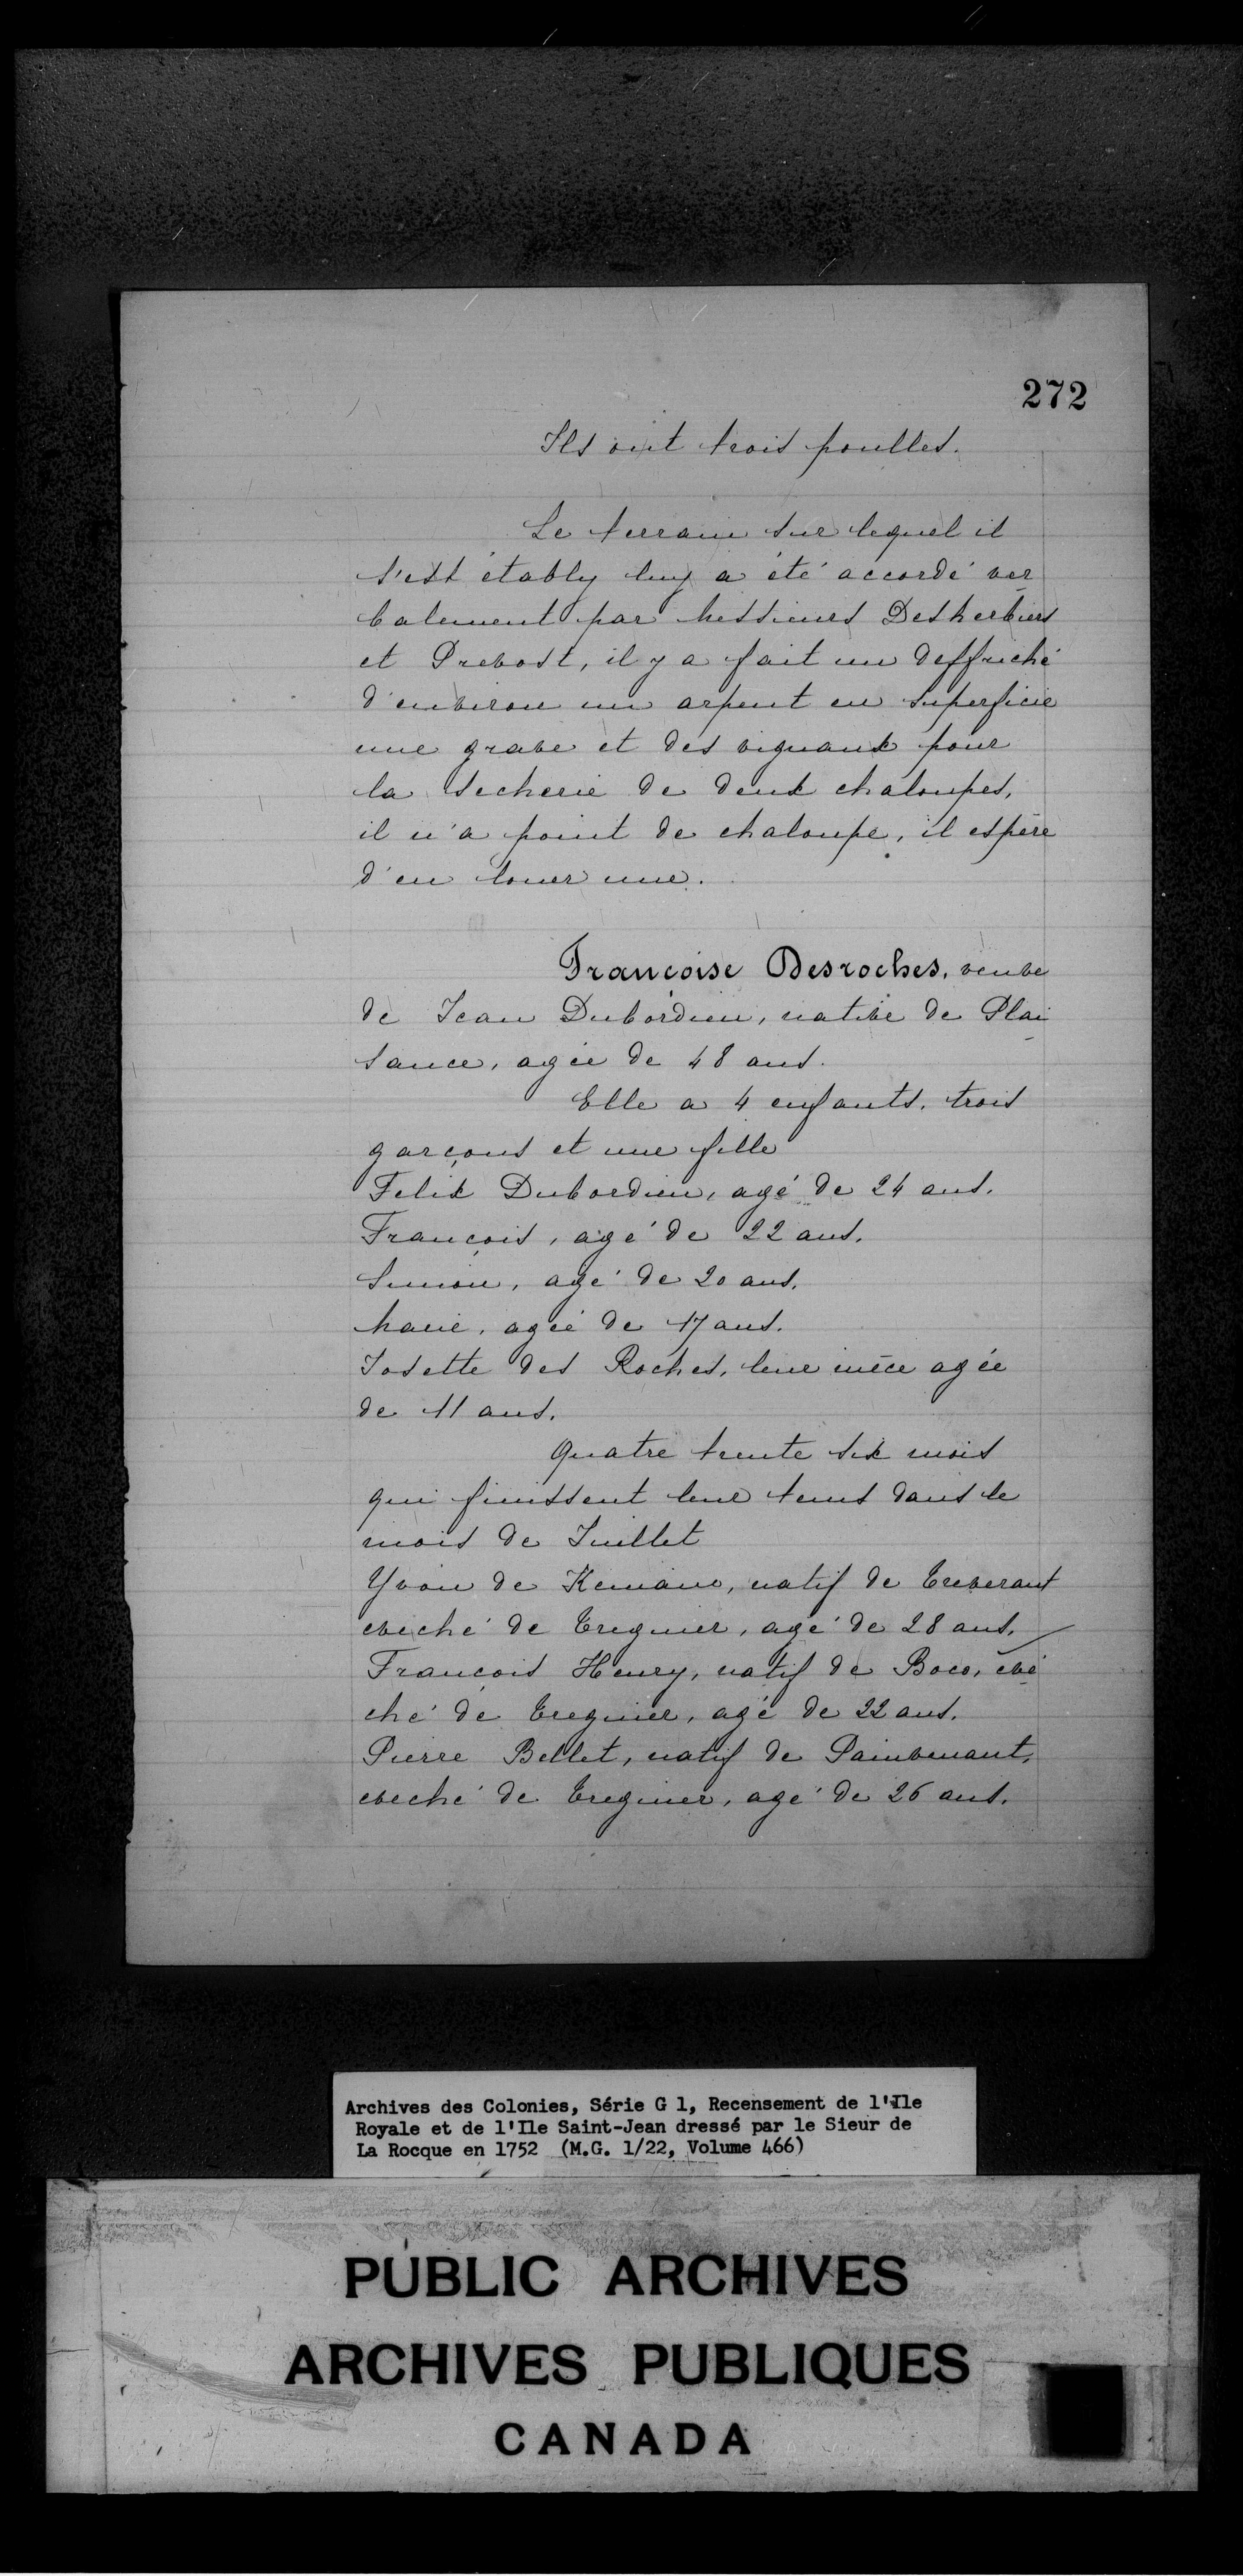 272
Ils ont trois poulles.
Le terrain sur lequel il
s'est étably luy a été accordé ver
balement par Messieurs Desherbiers
et Prevost, il y a fait un deffriché
d'environ un arpent en superficie
une grave et des vignaux pour
la secherie de deux chaloupes,
il n'a point de chaloupe, il espère
d'en louer une.
Françoise Desroches, veuve
de Jean Dubordieu, native de Plai
sance, agée de 48 ans.
Elle a 4 enfants, trois
garçons et une fille
Felix Dubordieu, agé de 24 ans.
François, agé de 22 ans.
Simon, agé de 20 ans.
Marie, agée de 17 ans.
Josette des Roches, leur nièce agée
de 11 ans.
Quatre trente six mois
qui finissent leur tems dans le
mois de Juillet
Yvon de Kemane, natif de Treverant
eveché de Treguier, agé de 28 ans.
François Henry, natif de Boco, evê
ché de Treguier, agé de 22 ans.
Pierre Bellet, natif de Painvenant,
eveché de Treguier, agé de 26 ans.
Archives des Colonies, Série G 1, Recensement de l'Ile
Royale et de l'Ile Saint-Jean dressé par le Sieur de
La Rocque en 1752 (M.G. 1/22, Volume 466)
PUBLIC ARCHIVES
ARCHIVES PUBLIQUES
CANADA